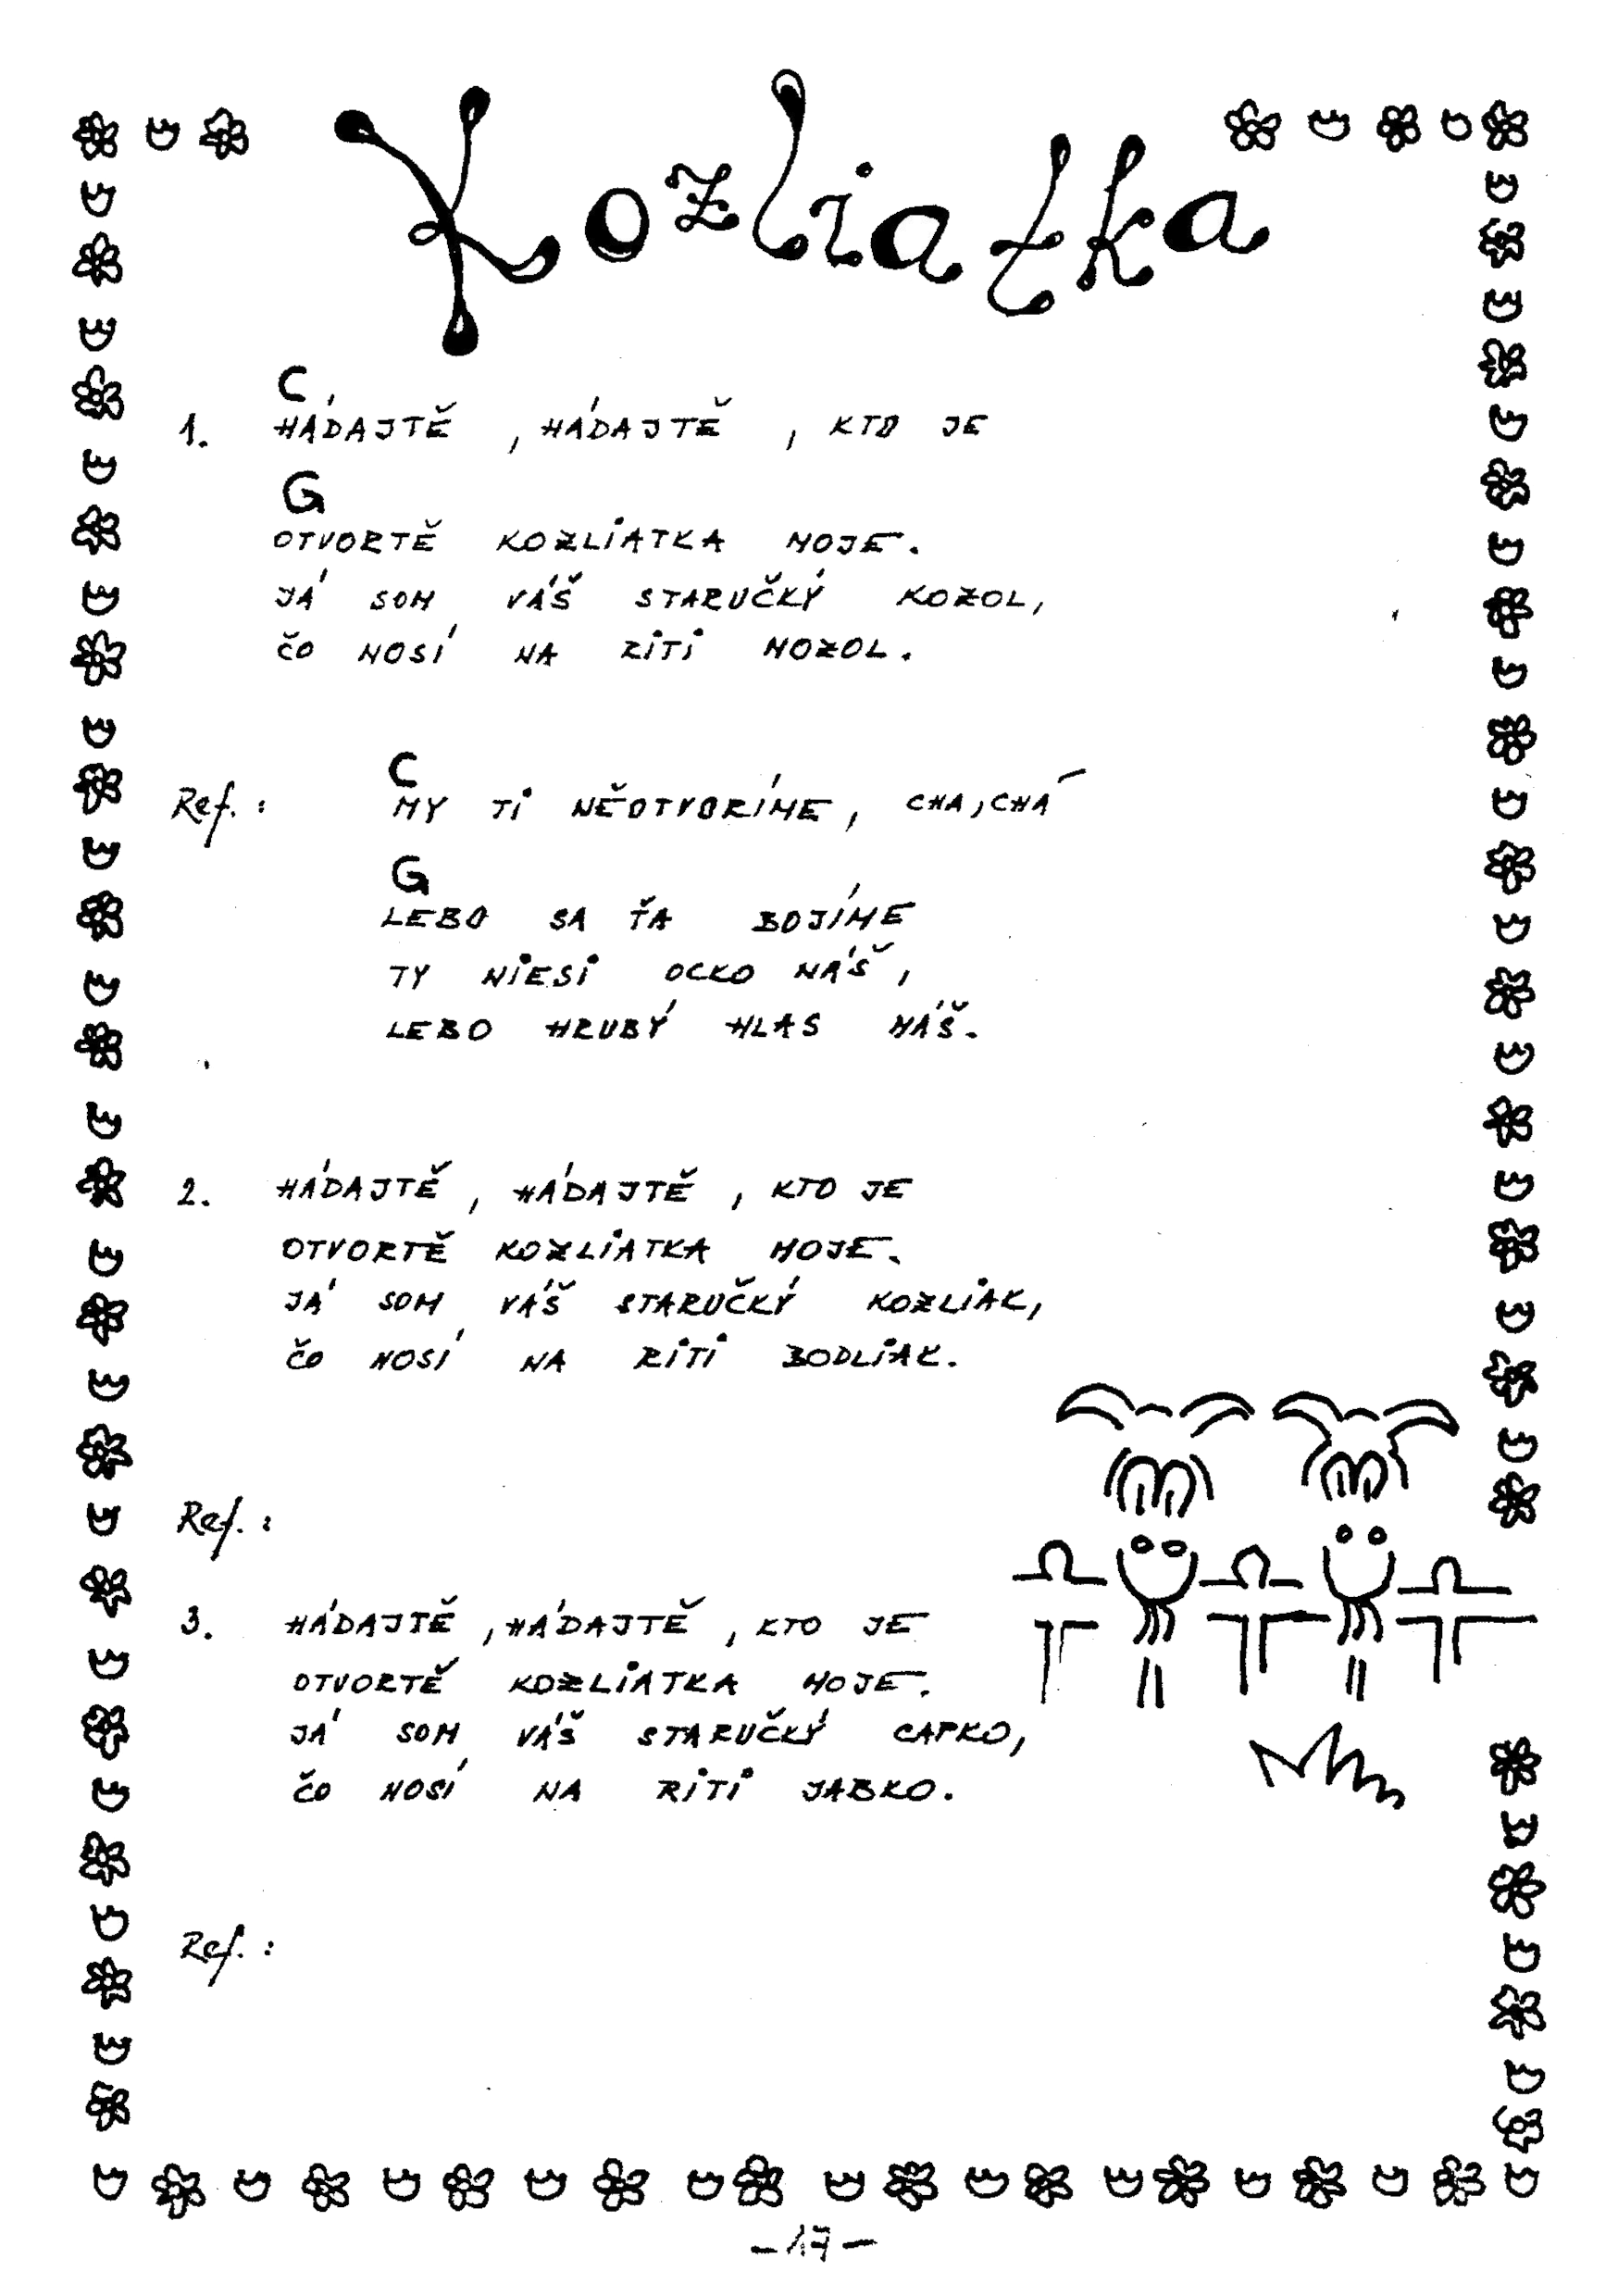 Kozliatka
C
1. HÁDAJTĚ, HÁDAJTĚ, KTO JE
G
OTVORTĚ KOZLIATKA MOJE.
JÁ SOM VÁŠ STARUČKÝ KOZOL,
ČO NOSÍ NA RITI MOZOL.
C
Ref.: MY TI NĚOTVORÍME, CHA, CHÁ
G
LEBO SA ŤA BOJÍME
TY NIESI OCKO NÁŠ,
LEBO HRUBÝ HLAS MÁŠ.
2. HÁDAJTĚ, HÁDAJTĚ, KTO JE
OTVORTĚ KOZLIATKA MOJE.
JÁ SOM VÁŠ STARUČKÝ KOZLIAK,
ČO NOSÍ NA RITI BODLIAK.
Ref.:
3. HÁDAJTĚ, HÁDAJTĚ, KTO JE
OTVORTĚ KOZLIATKA MOJE.
JÁ SOM VÁŠ STARUČKÝ CAPKO,
ČO NOSÍ NA RITI JABKO.
Ref.:
-17-